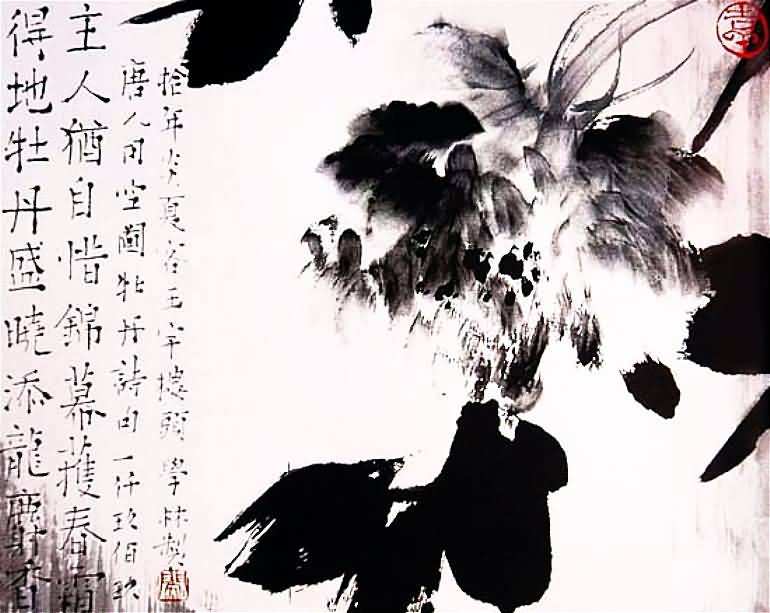 得地牡丹盛曉添龍麝香
主人猶自惜錦幕護春霜
唐人司空圖牡丹詩句一仟玖佰玖
拾年炎夏客玉宇樓頭學林製